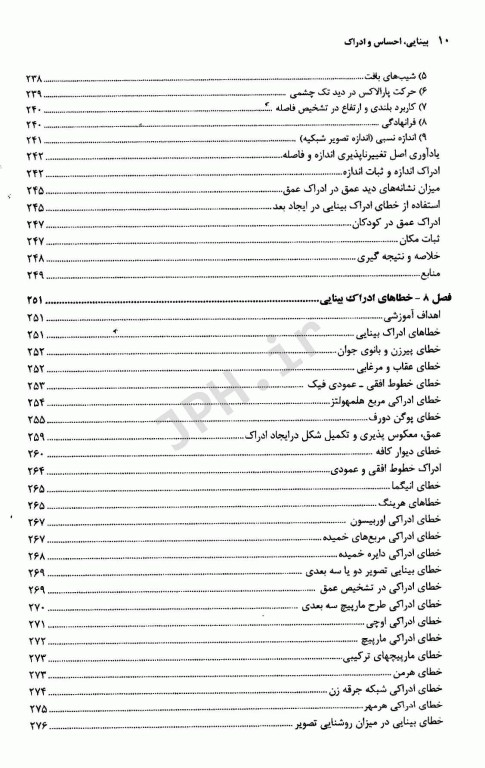 ۱۰ بینایی، احساس و ادراک
۵) شیب‌های بافت ۲۳۸
۶) حرکت پارالاکس در دید تک چشمی ۲۳۹
۷) کاربرد بلندی و ارتفاع در تشخیص فاصله ۲۴۰
۸) فرانهادگی ۲۴۰
۹) اندازه نسبی (اندازه تصویر شبکیه) ۲۴۱
یادآوری اصل تغییرناپذیری اندازه و فاصله ۲۴۲
ادراک اندازه و ثبات اندازه ۲۴۲
میزان نشانه‌های دید عمق در ادراک عمق ۲۴۵
استفاده از خطای ادراک بینایی در ایجاد بعد ۲۴۵
ادراک عمق در کودکان ۲۴۷
ثبات مکان ۲۴۷
خلاصه و نتیجه گیری ۲۴۸
منابع ۲۴۹
فصل ۸ - خطاهای ادراک بینایی ۲۵۱
اهداف آموزشی ۲۵۱
خطاهای ادراک بینایی ۲۵۱
خطای پیرزن و بانوی جوان ۲۵۲
خطای عقاب و مرغابی ۲۵۲
خطای خطوط افقی - عمودی فیک ۲۵۳
خطای ادراکی مربع هلمهولتز ۲۵۴
خطای پوگن دورف ۲۵۵
عمق، معکوس پذیری و تکمیل شکل درایجاد ادراک ۲۵۹
خطای دیوار کافه ۲۶۰
ادراک خطوط افقی و عمودی ۲۶۴
خطای انیگما ۲۶۵
خطاهای هرینگ ۲۶۵
خطای ادراکی اوربیسون ۲۶۷
خطای ادراکی مربع‌های خمیده ۲۶۷
خطای ادراکی دایره خمیده ۲۶۸
خطای بینایی تصویر دو یا سه بعدی ۲۶۹
خطای ادراکی در تشخیص عمق ۲۶۹
خطای ادراکی طرح مارپیچ سه بعدی ۲۷۰
خطای ادراکی اوچی ۲۷۱
خطای ادراکی مارپیچ ۲۷۲
خطای مارپیچهای ترکیبی ۲۷۳
خطای هرمن ۲۷۳
خطای ادراکی شبکه جرقه زن ۲۷۴
خطای ادراکی هرمهر ۲۷۵
خطای بینایی در میزان روشنایی تصویر ۲۷۶
JPH.ir